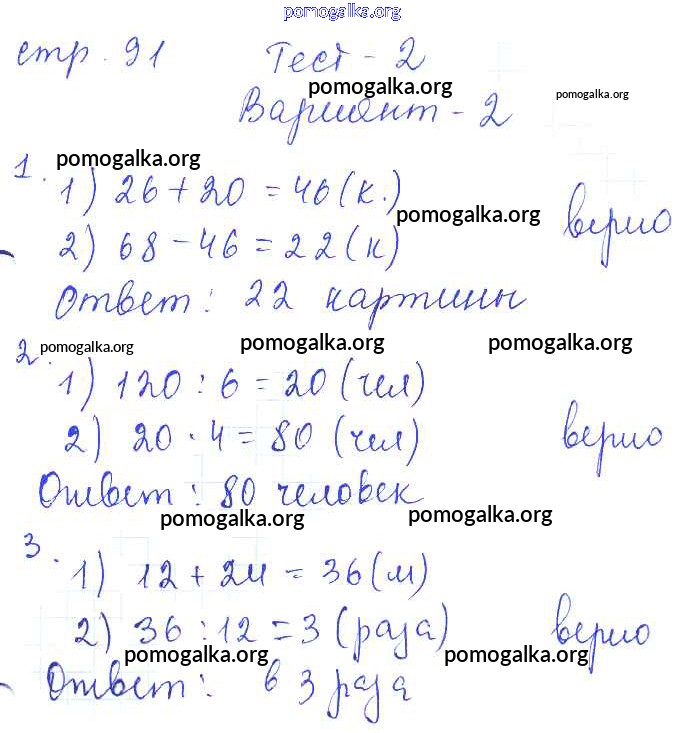 pomogalka.org
стр. 91 Тест - 2
pomogalka.org pomogalka.org
Вариант - 2
1. pomogalka.org
1) 26 + 20 = 46 (к.)
pomogalka.org верно
2) 68 - 46 = 22 (к)
Ответ: 22 картины
2. pomogalka.org pomogalka.org pomogalka.org
1) 120 : 6 = 20 (чел)
2) 20 · 4 = 80 (чел) верно
Ответ: 80 человек
pomogalka.org pomogalka.org
3. 1) 12 + 24 = 36 (м)
2) 36 : 12 = 3 (раза) верно
pomogalka.org pomogalka.org
Ответ: в 3 раза